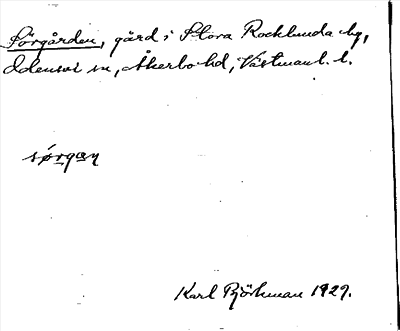 Sörgården, gård i Stora Rocklunda by,
Odensvi sn, Åkerbo hd, Västmanl. l.
sørgan
Karl Björkman 1929.